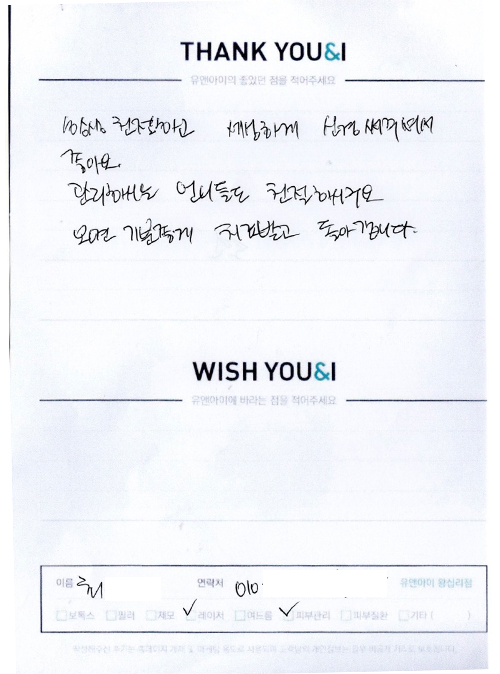 THANK YOU&I
유앤아이의 좋았던 점을 적어주세요
친절하고 세심하게 신경 써주셔서
좋아요.
관리해주는 언니들도 친절하시구요
오면 기분좋게 관리받고 돌아갑니다.
WISH YOU&I
유앤아이에 바라는 점을 적어주세요
이름 연락처 010- 유앤아이 왕십리점
보톡스 필러 제모 레이저 여드름 피부관리 피부질환 기타 ( )